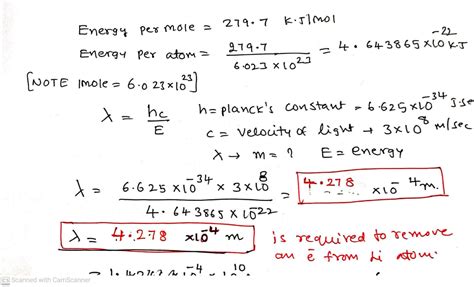 Energy per mole = 279.7 KJ/mol
Energy per atom = 279.7 / 6.023 x 10^23 = 4.643865 x 10^-22 KJ
[NOTE 1mole = 6.023x10^23]
λ = hc / E h = planck's constant = 6.625x10^-34 J.sec
c = velocity of light → 3x10^8 m/sec
λ → m = ? E = energy
λ = 6.625 x10^-34 x 3x10^8 / 4.643865 x 10^-22 = 4.278 x10^-4 m.
λ = 4.278 x10^-4 m is required to remove
an e̅ from Li atom.
CS Scanned with CamScanner